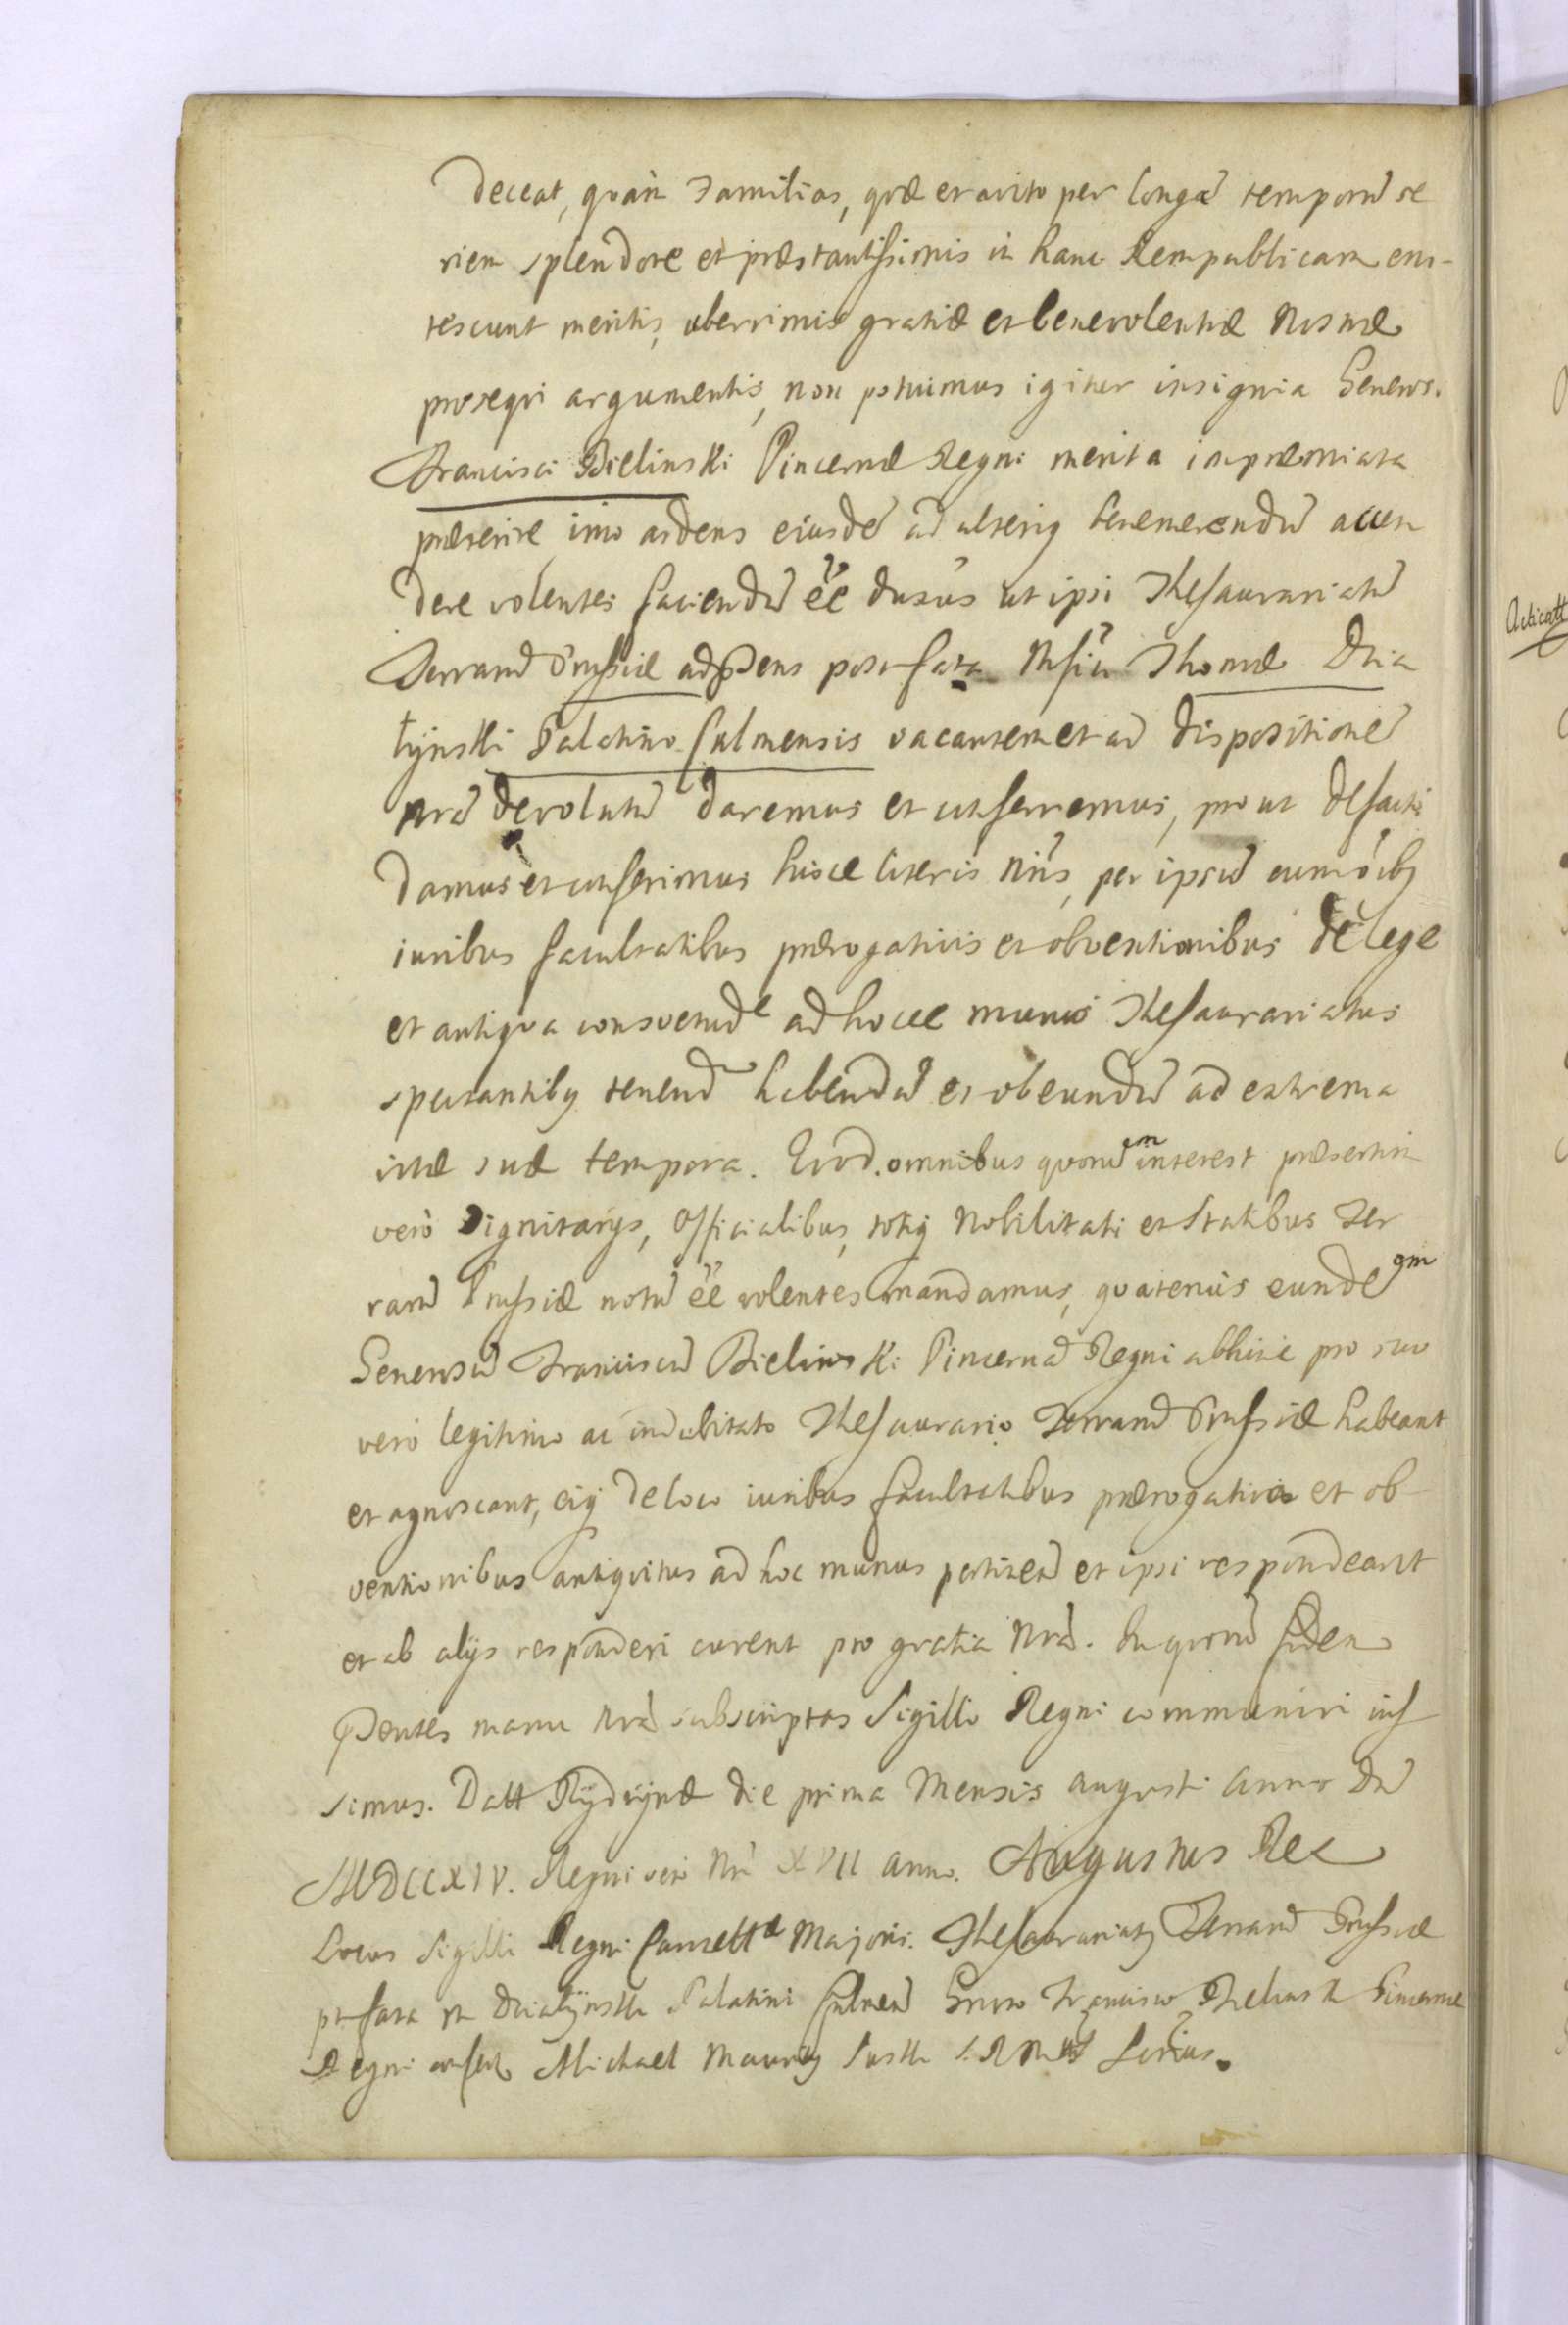 deceat, quàm Familias, quæ et avito per longã temporũ se
riem splendore et præstantissimis in hanc Rempublicam eni-
tescunt meritis, uberrimis gratiæ et benevolentiæ Nostræ
prosequi argumentis, non potuimus igitur insignia Generos.
Francisci Bielinski Pincernæ Regni merita inpræmiata
præterire imo ardens eiusdẽ ad ulterig benemerendũ accen
dere volentes faciendũ ẽẽ duxus ut ipsi Thesaurariatũ
Terrarũ Prussiæ ad Pdens post fata Mfici Thomæ Dzia
łynski Palatino Culmensis vacantem et ad dispositionẽ
nrã devolutũ daremus et conferremus, prout de facto
damus et conferimus hisce literis Nris, per ipsũ cum oibg
iuribus facultatibus prærogativis et obventionibus de lege
et antiqua consvetude ad hocce munus Thesaurariatus
spectantibg tenend habendũ et obeundũ ad extrema
vitæ suæ tempora. Quod. omnibus quorũ interest præsertim
verò Dignitarys, Officialibus, totig Nobilitati et Statibus Ter
rarũ Prussiæ notũ ẽẽ volentes mandamus, quatenùs eundẽ gm
Generosũ Franciscũ Bielinski Pincernã Regni abhinc pro suo
vero legitimo ac indubitato Thesaurario Terrarũ Prussiæ habeant
et agnoscant, eig de loco iuribus facultatibus prærogativis et ob
ventionibus antiquitus ad hoc munus pertinen et ipsi respondeant
et ab alijs responderi curent pro gratia Nrã. In quorũ fidem
Pdentes manu Nrã subscriptas Sigillo Regni communiri ius
simus. Datt Rydzynæ die prima Mensis Augusti Anno Dñ
MDCCXIV. Regni vero Nri XVII anno. Augustus Rex
Locus Sigilli Regni Cancellæ Majoris. Thesaurariatg Terrarũ Prussiæ
pt fata Dzialynski Palatini Culmen Gnroso Francisco Bielinski Pincernæ
Regni confert Michael